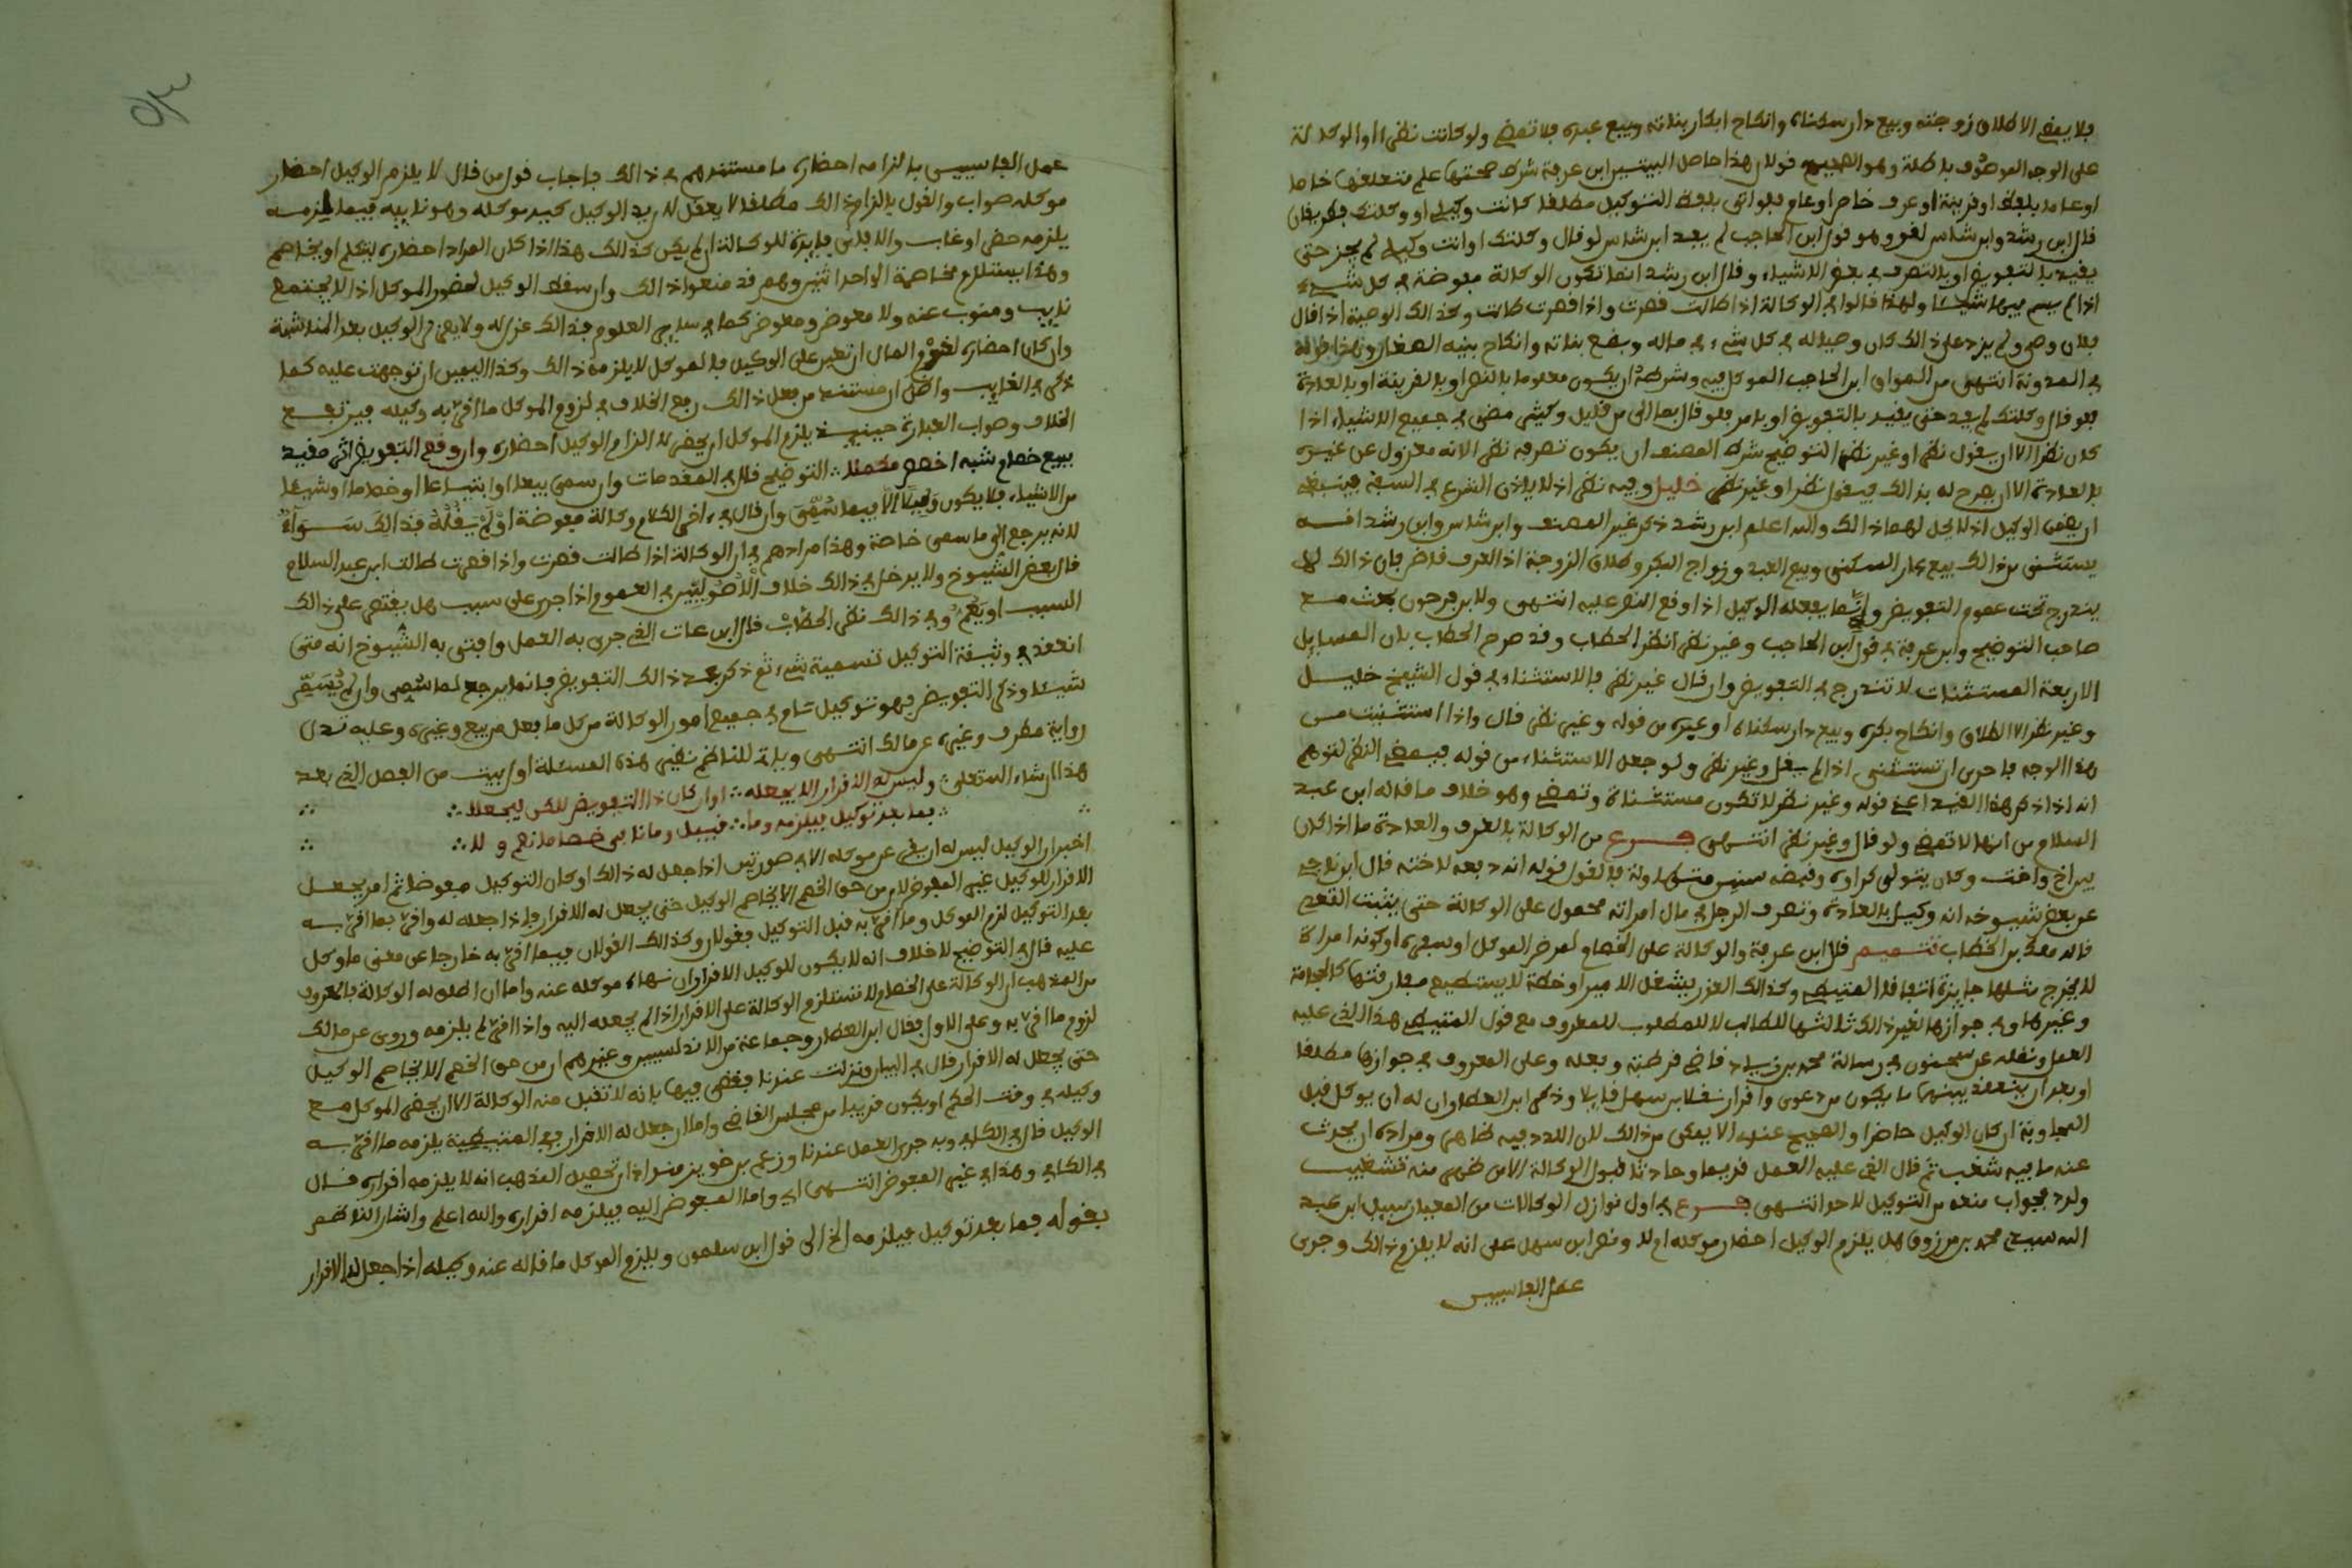 فلا يمضي الا طلاق زوجته وبيع دار سكناه وانكاح ابكار بناته وبيع عبده فلا تمضي ولو كانت نظرا او الوكالة
على الوجه الموصوف باطلة وهو الصحيح قولان هذا حاصل البيتين ابن عرفة شرط صحتها علم متعلقها خاصا
او عاما بلفظ او قرينة او عرف خاص او عام فلو اتى بلفظ التوكيل مطلقا كانت وكيلي او وكلتك فطريقان
قال ابن رشد وابن شاس لغو وهو قول ابن الحاجب لم يفد ابن شاس لو قال وكلتك او انت وكيلي لم يجز حتى
يقيد بالتفويض او بالتصرف في بعض الاشياء وقال ابن رشد انما تكون الوكالة مفوضة في كل شيء
اذا لم يسم فيها شيئا ولهذا قالوا في الوكالة اذا طالت قصرت واذا قصرت طالت وكذالك الوصية اذا قال
فلان وصي ولم يزد على ذالك كان وصيا له في كل شيء في ماله وبضع بناته وانكاح بنيه الصغار وهذا قوله
في المدونة انتهى من المواق ابن الحاجب الموكل فيه وشرطه ان يكون معلوما بالنص او بالقرينة او بالعادة
فلو قال وكلتك لم يفد حتى يقيد بالتفويض او بامر فلو قال بما الي من قليل وكثير مضى في جميع الاشياء اذا
كان نظرا الا ان يقول نظر او غير نظر التوضيح شرط المصنف ان يكون تصرفه نظرا لانه معزول عن غيره
بالعادة الا ان يصرح له بذالك فيقول نظر او غير نظر خليل وفيه نظر اذ لا ياذن الشرع في السفه فينبغي
ان يضمن الوكيل اذ لا يحل لهما ذالك والله اعلم ابن رشد ذكر غير المصنف وابن شاس وابن رشد انه
يستثنى من ذالك بيع دار السكنى وبيع العبد وزواج البكر وطلاق الزوجة اذ العرف قاض بان ذالك لا
يندرج تحت عموم التفويض وانما يفعله الوكيل اذا وقع النص عليه انتهى ولابن فرحون بحث مع
صاحب التوضيح وابن عرفة في قول ابن الحاجب وغير نظر انظر الحطاب وقد صرح الحطاب بان المسايل
الاربعة المستثنات لا تندرج في التفويض وان قال غير نظر فالاستثناء في قول الشيخ خليل
وغير نظر الا الطلاق وانكاح بكره وبيع دار سكناه او عبده من قوله وغير نظر قال واذا استثنيت من
هذا الوجه فاحرى ان تستثنى اذا لم يقل وغير نظر ولو جعل الاستثناء من قوله فيمضي النظر لتوهم
انه اذا ذكر هذا القيد اعني قوله وغير نظر لا تكون مستثناة وتمضي وهو خلاف ما قاله ابن عبد
السلام من انها لا تمضي ولو قال وغير نظر انتهى فرع من الوكالة بالعرف والعادة ما اذا كان
بين اخ واخت وكان يتولى كراءه وقبضه سنين متطاولة فالقول قوله انه دفعه لاخته قال ابن ناجي
عن بعض شيوخه انه وكيل بالعادة وتصرف الرجل في مال امراته محمول على الوكالة حتى يثبت التعدي
قاله مالك من الحطاب تتميم قال ابن عرفة والوكالة على الخصام لمرض الموكل او سفره او كونه امراة
لا يخرج مثلها جايزة اتفاقا المتيطي وكذالك العذر بشغل الامير او خطة لا يستطيع مفارقتها كالحجابة
وغيرها وفي جوازها لغير ذالك ثالثها للطالب لا للمطلوب للمعروف مع قول المتيطي هذا الذي عليه
العمل ونقله عن سحنون في رسالة محمد بن زياد قاضي قرطبة وبعله وعلى المعروف في جوازها مطلقا
او بعد ان ينعقد بينهما ما يكون من دعوى واقرار نقلا ابن سهل قايلا وذكر ابن العطار ان له ان يوكل قبل
المجاوبة ان كان الوكيل حاضرا والصحيح عندي الا يمكن من ذالك لان اللدد فيه ظاهر ومراده ان يحدث
عنه ما فيه شغب ثم قال الذي عليه العمل قديما وحادثا قبول الوكالة الا من ظهر منه تشغيب
ولدد فجواب منعه من التوكيل لاحد انتهى فرع في اول نوازل الوكالات من المعيار سيل ابن عبد
الله سيدي محمد بن مرزوق هل يلزم الوكيل احضار موكله ام لا ونص ابن سهل على انه لا يلزم ذالك وجرى
عمل الفاسيين
عمل الفاسيين بالزامه احضاره ما مستندهم في ذالك فاجاب قول من قال لا يلزم الوكيل احضار
موكله صواب والقول بالزام ذالك مطلقا لا يعقل لان يد الوكيل كيد موكله وهو نايبه فيما يلزمه
يلزمه حضر او غاب والا فلا فايدة للوكالة ان لم يكن كذالك هذا اذا كان المراد احضاره ليتكلم او يخاصم
وهذا يستلزم مخاصمة الواحد اثنين وهم قد منعوا ذالك وان سقط الوكيل لحضور الموكل اذ لا يجتمع
نايب ومنوب عنه ولا معوض ومعوض كما في ساير العلوم فذالك عزل له ولا يعزل الوكيل بعد المناشبة
وان كان احضاره لغرم المال ان تعين على الوكيل فالموكل لا يلزمه ذالك وكذا اليمين ان توجهت عليه كما
ذكر في الغايب واظن ان مستند من فعل ذالك رفع الخلاف في لزوم الموكل ما اقر به وكيله فيرتفع
الخلاف وصواب العبارة حينيذ يلزم الموكل ان يحضر لا الزام الوكيل احضاره وان وقع التفويض اثر مفيد
ببيع خصام شبه اخصص مكملا ∴ التوضيح قال في المقدمات وان سمى بيعا او ابتياعا او خصاما او شيئا
من الاشياء فلا يكون وكيلا الا فيما سمى وان قال في ءاخر الكلام وكالة مفوضة او لم يقله فذالك سواء
لانه يرجع الى ما سمى خاصة وهذا مرادهم في ان الوكالة اذا طالت قصرت واذا قصرت طالت ابن عبد السلام
قال بعض الشيوخ ولا يدخل في ذالك خلاف الاصوليين في العموم اذا جرى على سبب هل يقتصر على ذالك
السبب او يعم وفي ذالك نظر الحطاب قال ابن عات الذي جرى به العمل وافتى به الشيوخ انه متى
انعقد في وثيقة التوكيل تسمية شيء ثم ذكر بعد ذالك التفويض فانما يرجع لما سمى وان لم يسم
شيئا وذكر التفويض فهو توكيل تام في جميع امور الوكالة من كل ما فعل من بيع وغيره وعليه تدل
رواية مطرف وغيره عن مالك انتهى وياتي للناظم نظير هذه المسئلة اول بيت من الفصل الذي بعد
هذا ان شاء الله تعالى ∴ وليس له الاقرار الا بجعله ∴ او ان كان ذا التفويض للكل يجعلا ∴
∴ بما بعد توكيل فيلزمه وما ∴ قبيل وما نابى خصاما نعم و لا ∴
اخبر ان الوكيل ليس له ان يقر عن موكله الا في صورتين اذا جعل له ذالك او كان التوكيل مفوضا ثم امر بجعل
الاقرار للوكيل غير المفوض لان من حق الخصم الا يخاصم الوكيل حتى يجعل له الاقرار واذا جعله له واقر بما اقر به
بعد التوكيل لزم الموكل وما اقر به قبل التوكيل فقولان وكذالك القولان فيما اقر به خارجا عن معنى ما وكل
عليه قال في التوضيح لا خلاف انه لا يكون للوكيل الاقرار ان نهاه موكله عنه واما ان اطلق له الوكالة فالمعروف
من المذهب ان الوكالة على الخصام لا تستلزم الوكالة على الاقرار اذا لم يجعله اليه واذا اقر لم يلزمه وروي عن مالك
لزوم ما اقر به وعلى الاول فقال ابن العطار وجماعة من الاندلسيين وغيرهم ان من حق الخصم الا يخاصم الوكيل
حتى يجعل له الاقرار قال في البيان ونزلت عندنا فقضي فيها بانه لا تقبل منه الوكالة الا ان يحضر الموكل مع
وكيله في وقت الحكم او يكون قريبا من مجلس القاضي واما ان جعل له الاقرار ففي المتيطية يلزمه ما اقر به
الوكيل قال في الكافي وبه جرى العمل عندنا وزعم بن خويز منداد ان تحصيل المذهب انه لا يلزمه اقراره قال
في الكافي وهذا في غير المفوض انتهى اي واما المفوض اليه فيلزمه اقراره والله اعلم واشار الناظم
بقوله بما بعد توكيل فيلزمه الخ الى قول ابن سلمون ويلزم الموكل ما قاله عنه وكيله اذا جعل له الاقرار